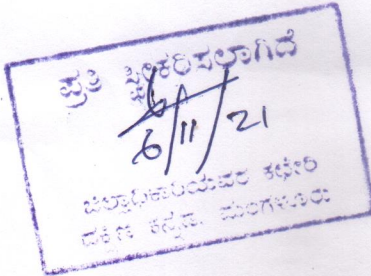 ಪ್ರತಿ ಸ್ವೀಕರಿಸಲಾಗಿದೆ
6/11/21
ಜಿಲ್ಲಾಧಿಕಾರಿಯವರ ಕಛೇರಿ
ದಕ್ಷಿಣ ಕನ್ನಡ, ಮಂಗಳೂರು